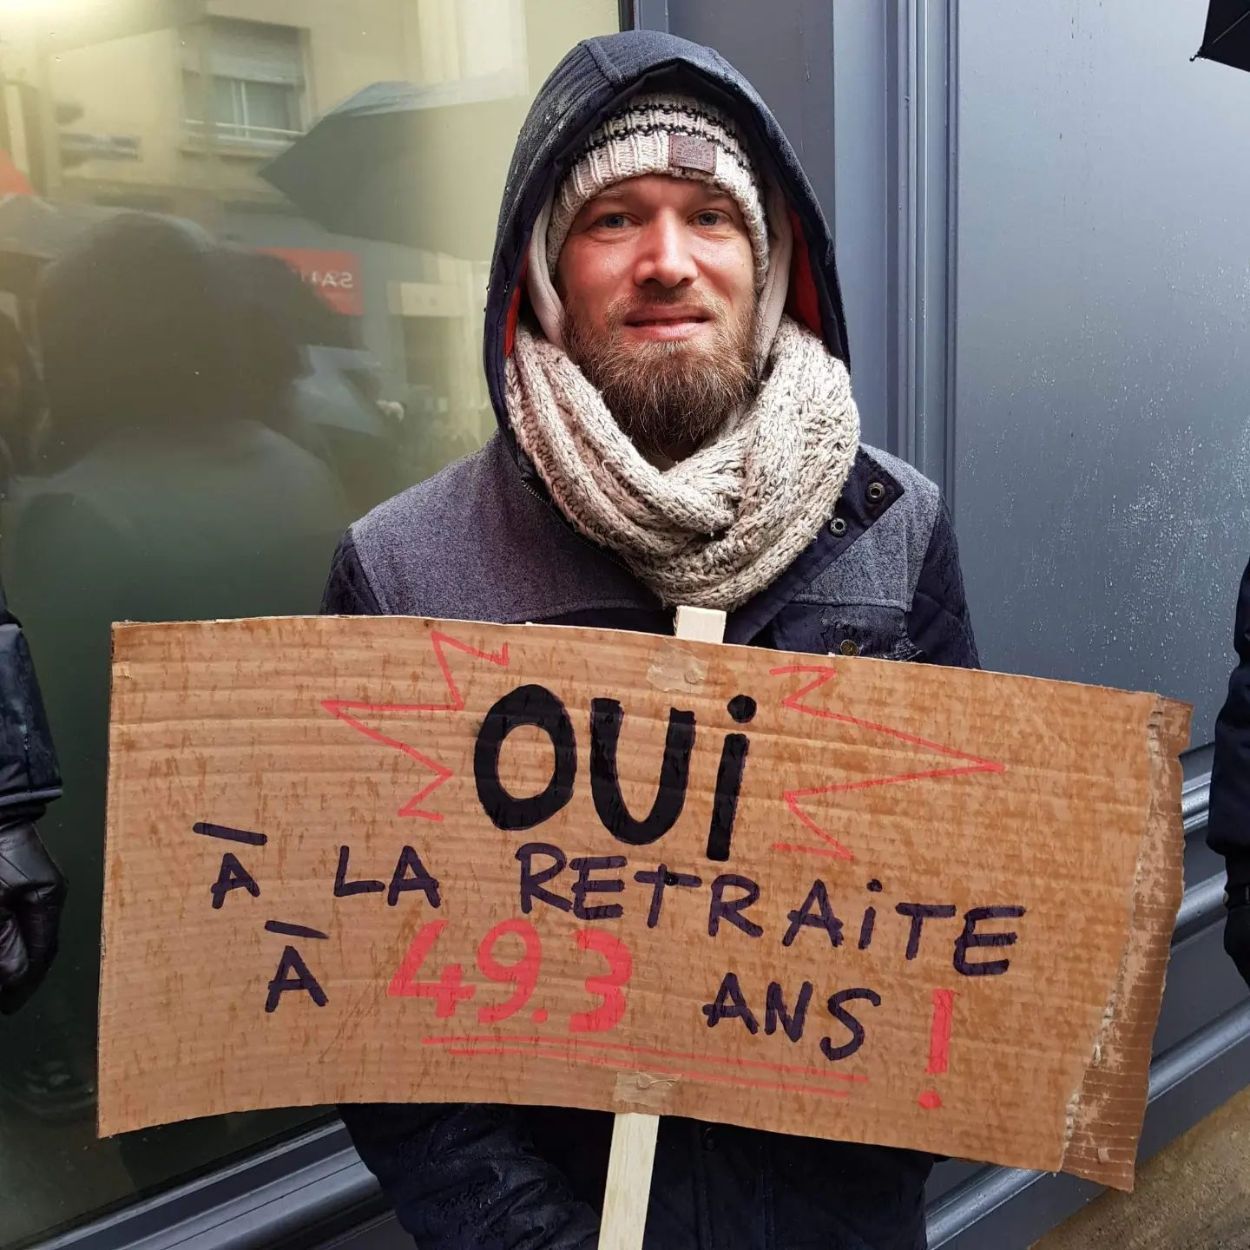 OUi
À LA RETRAiTE
À 49.3 ANS !